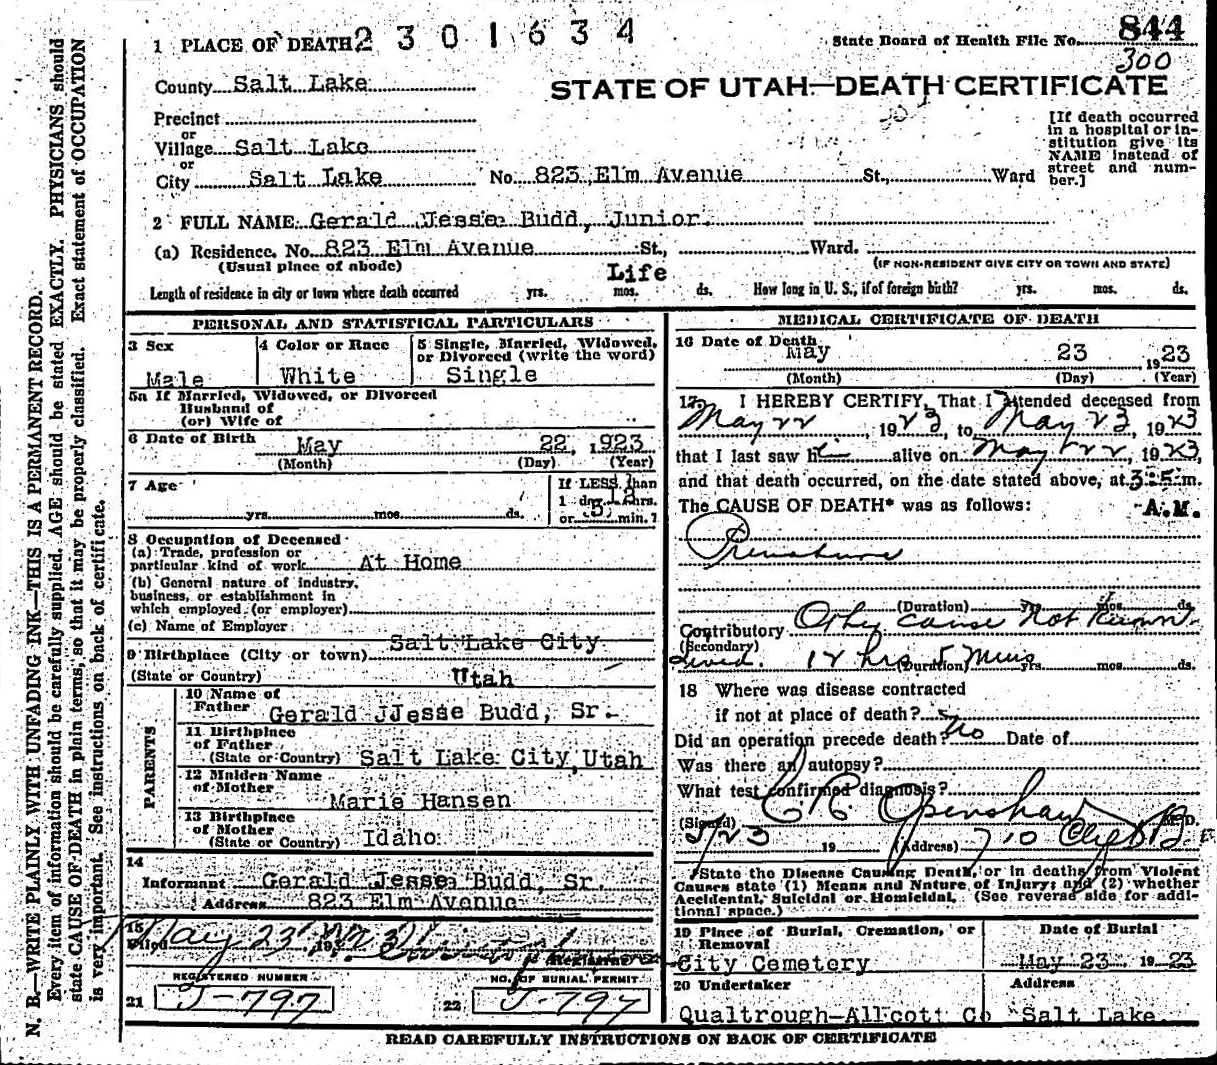 1 PLACE OF DEATH 2301634
State Board of Health File No. 844
300
County Salt Lake
STATE OF UTAH—DEATH CERTIFICATE
Precinct
or
Village Salt Lake
or
City Salt Lake No. 823 Elm Avenue St., Ward
[If death occurred
in a hospital or in-
stitution give its
NAME instead of
street and num-
ber.]
2 FULL NAME Gerald Jesse Budd, Junior.
(a) Residence. No. 823 Elm Avenue St., Ward.
(Usual place of abode) (IF NON-RESIDENT GIVE CITY OR TOWN AND STATE)
Life
Length of residence in city or town where death occurred yrs. mos. ds. How long in U. S., if of foreign birth? yrs. mos. ds.
PERSONAL AND STATISTICAL PARTICULARS
3 Sex
Male
4 Color or Race
White
5 Single, Married, Widowed,
or Divorced (write the word)
Single
5a If Married, Widowed, or Divorced
Husband of
(or) Wife of
6 Date of Birth May 22, 1923
(Month) (Day) (Year)
7 Age
yrs. mos. ds.
If LESS than
1 day 12 hrs.
or 5 min.?
8 Occupation of Deceased
(a) Trade, profession or
particular kind of work At Home
(b) General nature of industry,
business, or establishment in
which employed (or employer)
(c) Name of Employer
9 Birthplace (City or town) Salt Lake City
(State or Country) Utah
PARENTS
10 Name of
Father Gerald JJesse Budd, Sr.
11 Birthplace
of Father
(State or Country) Salt Lake City, Utah
12 Maiden Name
of Mother
Marie Hansen
13 Birthplace
of Mother
(State or Country) Idaho
14
Informant Gerald Jesse Budd, Sr.
Address 823 Elm Avenue
15
Filed May 23 192
Registrar
REGISTERED NUMBER
21 J-797
NO. OF BURIAL PERMIT
22 J-797
MEDICAL CERTIFICATE OF DEATH
16 Date of Death
May 23 1923
(Month) (Day) (Year)
17 I HEREBY CERTIFY, That I attended deceased from
May 22, 1923, to May 23, 1923
that I last saw hi alive on May 22, 1923,
and that death occurred, on the date stated above, at 3:5 m.
The CAUSE OF DEATH* was as follows: A.M.
Premature
(Duration) yrs. mos. ds.
Contributory Other cause not known
(Secondary)
Lived 12 hrs 5 Mins (Duration) yrs. mos. ds.
18 Where was disease contracted
if not at place of death?
Did an operation precede death? No Date of
Was there an autopsy?
What test confirmed diagnosis?
(Signed) C R Openshaw M.D.
5/23 19 (Address) 710 Clift B
*State the Disease Causing Death, or in deaths from Violent
Causes state (1) Means and Nature of Injury; and (2) whether
Accidental, Suicidal or Homicidal. (See reverse side for addi-
tional space.)
19 Place of Burial, Cremation, or
Removal
City Cemetery
Date of Burial
May 23 1923
20 Undertaker
Qualtrough-Allcott Co
Address
Salt Lake
READ CAREFULLY INSTRUCTIONS ON BACK OF CERTIFICATE
N. B.—WRITE PLAINLY WITH UNFADING INK—THIS IS A PERMANENT RECORD.
Every item of information should be carefully supplied. AGE should be stated EXACTLY. PHYSICIANS should
state CAUSE OF DEATH in plain terms, so that it may be properly classified. Exact statement of OCCUPATION
is very important. See instructions on back of certificate.